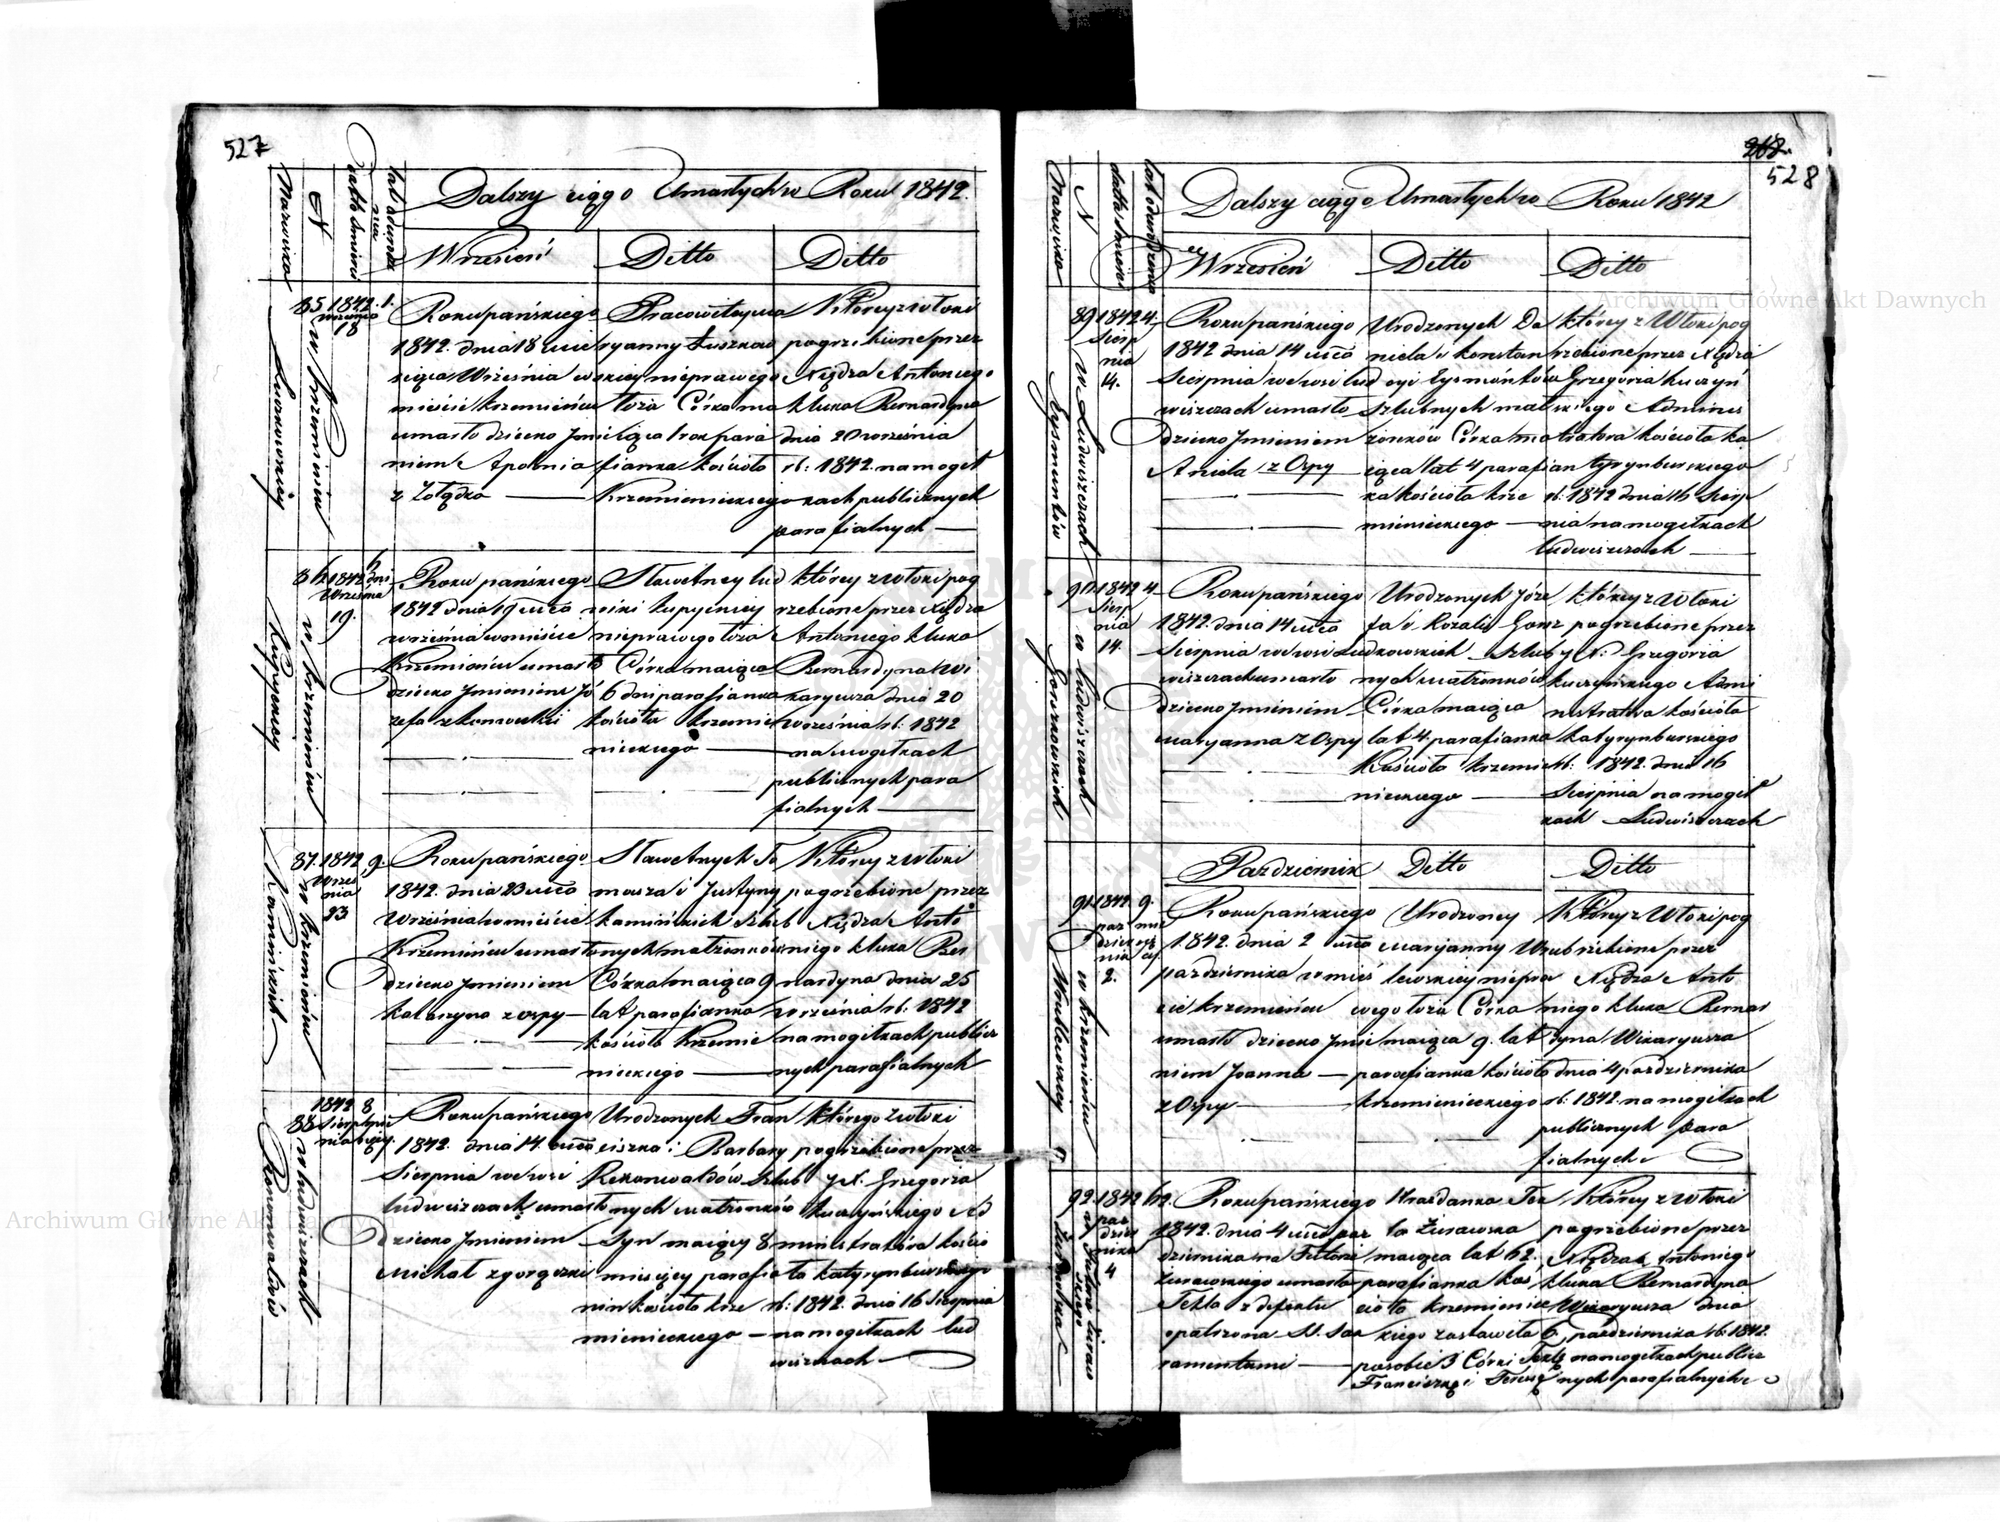 527
Dalszy ciąg o Umarłych w Roku 1842.
Nazwisko
N
Datta śmierci
Wrzesień
Ditto
Ditto
85
1842
Września
18
1.
w Krzemieńcu
Roku pańskiego
1842. dnia 18 mie
siąca Września w
mieście Krzemieńcu
umarło dziecko Jmie
niem Apolonia
z Żołądka
Pracowitey Ma
ryanny
nieprawego
łoża Córka ma
iąca 1 rok para
fianka kościoła
Krzemienieckiego
Którey zwłoki
pogrzebione przez
Xiędza Antoniego
Kluka Bernardyna
dnia 20 września
rb: 1842. na mogił
kach publicznych
parafialnych
86
1842
Września
19.
6 dni
w Krzemieńcu
Roku pańskiego
1842 dnia 19 mca
września w mieście
Krzemieńcu umarło
dziecko Jmieniem Jó
zefa z konwulsii
Sławetney Lud
wiki
nieprawego łoża
Córka maiąca
6 dni parafianka
kościoła Krzemie
nieckiego
którey zwłoki pog
rzebione przez Xiędza
Antoniego Kluka
Bernardyna Wi
karyusza dnia 20
września rb: 1842
na mogiłkach
publicznych para
fialnych
87.
1842
Wrześ
nia
23
9.
w Krzemieńcu
Kamińskich
Roku pańskiego
1842. dnia 23 mca
Września w mieście
Krzemieńcu umarło
dziecko Jmieniem
Katarzyna z ospy
Sławetnych To
masza i Justyny
Kamińskich Szlub
nych małżonków
Córka maiąca 9
lat parafianka
kościoła Krzemie
nieckiego
Którey zwłoki
pogrzebione przez
Xiędza Anto
niego Kluka Ber
nardyna dnia 25
września rb: 1842
na mogiłkach publicz
nych parafialnych
88
1842
Sierp
nia
8
w Ludwiszczach
Rekonwaldów
Roku pańskiego
1842. dnia 14. mca
Sierpnia we wsi
Ludwiszczach umarło
dziecko Jmieniem
Michał z gorączki
Urodzonych Fran
ciszka i Barbary
Rekonwaldów Szlub
nych małżonków
Syn maiący 8
miesięcy parafia
nin kościoła Krze
mienieckiego
którego zwłoki
pogrzebione przez
JX. Grzegorza
Kuczyńskiego Ad
ministratora kościo
ła Katyrynburskiego
rb: 1842. dnia 16 Sierpnia
na mogiłkach Lud
wiszczach
528
Dalszy ciąg o Umarłych w Roku 1842
Nazwisko
N
Wrzesień
Ditto
Ditto
89
1842
Sierp
nia
14.
4
w Ludwiszczach
Eysmontów
Roku pańskiego
1842 dnia 14 mca
Sierpnia we wsi Lud
wiszczach umarło
dziecko Jmieniem
Aniela z Ospy
Urodzonych Da
niela i Konstan
cyi Eysmontów
Szlubnych mał
żonków Córka ma
iąca lat 4 parafian
ka kościoła Krze
mienieckiego
którey zwłoki pog
rzebione przez Xiędza
Grzegorza Kuczyń
skiego Adminis
tratora kościoła Ka
tyrynburskiego
rb: 1842 dnia 16 Sierp
nia na mogiłkach
Ludwiszczach
90.
1842
Sierp
nia
14.
4
w Ludwiszczach
Roku pańskiego
1842. dnia 14 mca
Sierpnia we wsi Lud
wiszczach umarło
dziecko Jmieniem
Maryanna z Ospy
Urodzonych Józe
fa i Rozalii Gorz
kowskich Szlub
nych małżonków
Córka maiąca
lat 4. parafianka
Kościoła Krzemie
nieckiego
którey zwłoki
pogrzebione przez
JX: Grzegorza
Kuczyńskiego Admi
nistratora kościoła
Katyrynburskiego
rb: 1842. dnia 16
Sierpnia na mogił
kach Ludwiszczach
Październik
Ditto
Ditto
91.
1842
paź
dzier
nika
2.
9.
w Krzemieńcu
Wrublewskiey
Roku pańskiego
1842. dnia 2 mca
października w mieś
cie Krzemieńcu
umarło dziecko Jmie
niem Joanna
z Ospy
Urodzoney
Maryanny Wrub
lewskiey niepra
wego łoża Córka
maiąca 9. lat
parafianka kościoła
Krzemienieckiego
Którey zwłoki pog
rzebione przez
Xiędza Anto
niego Kluka Bernar
dyna Wikaryusza
dnia 4 października
rb: 1842. na mogiłkach
publicznych para
fialnych
92.
1842
paź
dzier
nika
4
62.
Żurawska
Roku pańskiego
1842. dnia 4 mca paź
dziernika na Futorze
Żurawskiego umarła
Tekla z defektu
opatrzona S. Sak
ramentami
Hrażdanka Tek
la Żurawska
maiąca lat 62.
parafianka koś
cioła Krzemieniec
kiego zostawiła
po sobie 3 Córki Teklę
Franciszkę i Teresę
Którey zwłoki
pogrzebione przez
Xiędza Antoniego
Kluka Bernardyna
Wikaryusza dnia
6, października rb: 1842.
na mogiłkach publicz
nych parafialnych
Archiwum Główne Akt Dawnych
Archiwum Główne Akt Dawnych